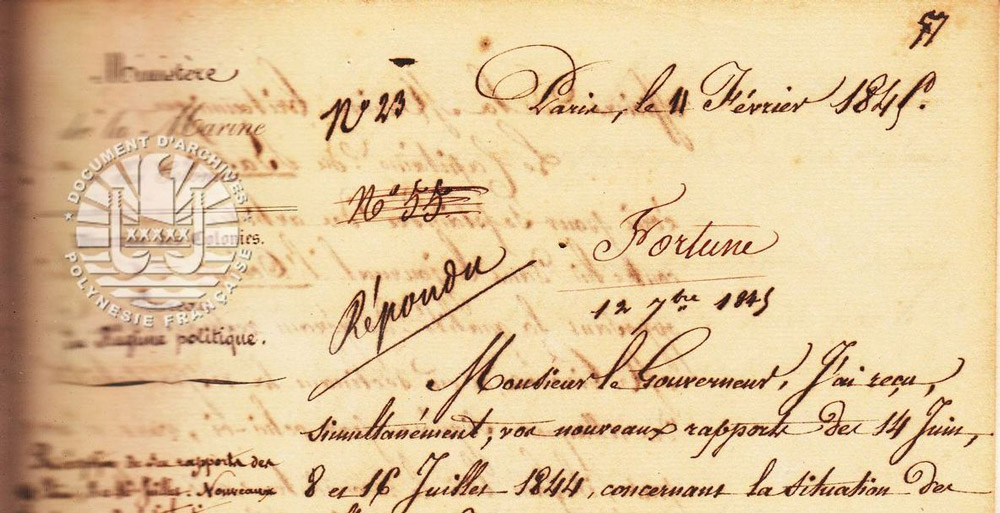 57
Ministère
de la Marine
Nº 23
Paris, le 11 Février 1845.
DOCUMENT D'ARCHIVES
POLYNESIE FRANÇAISE
Nº 55
Colonies.
Fortune
Répondu
12 7bre 1845
Régime politique.
Monsieur le Gouverneur, J'ai reçu,
simultanément, vos nouveaux rapports des 14 Juin,
rapports des
8 et 16 Juillet 1844, concernant la situation des
Juillet. Nouveaux